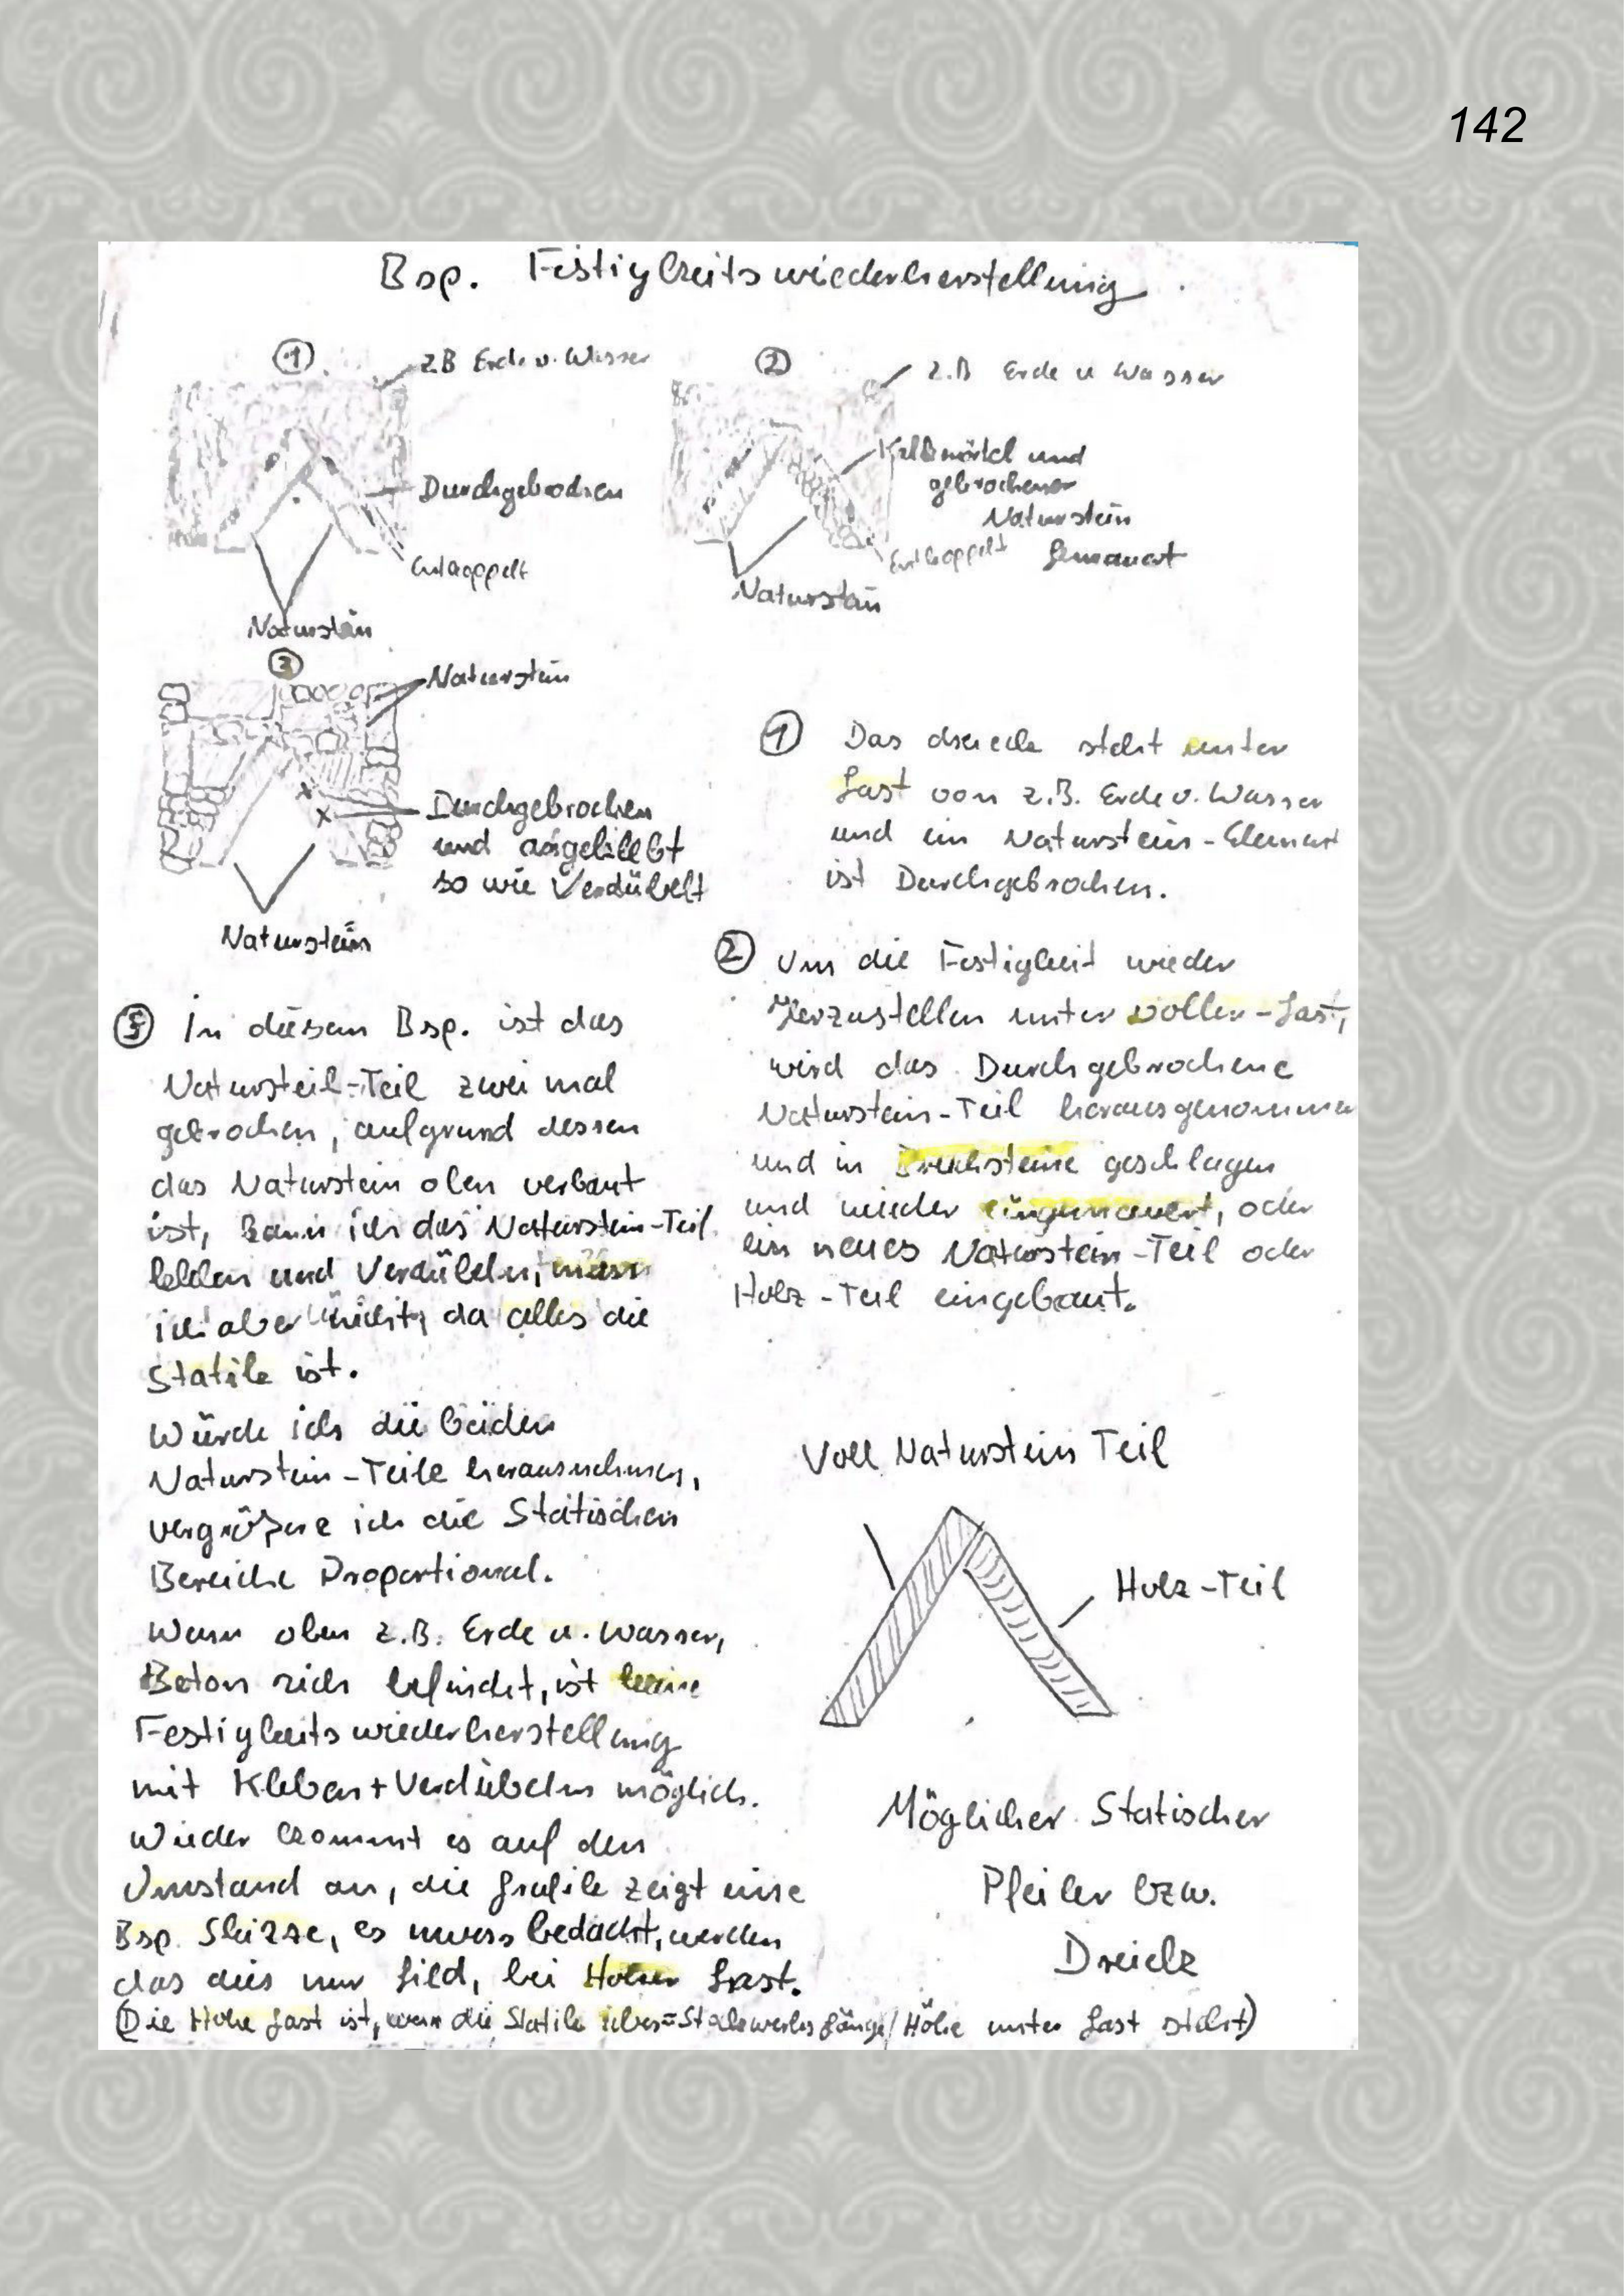 142
Bsp. Festigkeitswiederherstellung
①
z.B Erde u. Wasser
Durchgebrochen
Entkoppelt
Naturstein
②
z.B Erde u Wasser
Kalkmörtel und
gebrochener
Naturstein
Gemauert
Entkoppelt
Naturstein
③
Naturstein
Durchgebrochen
und angeklebt
so wie Verdübelt
Naturstein
① Das dreieck steht unter
Last von z.B. Erde u. Wasser
und ein Naturstein-Element
ist Durchgebrochen.
② Um die Festigkeit wieder
Herzustellen unter voller-Last,
wird das Durchgebrochene
Naturstein-Teil herausgenommen
und in Bruchsteine geschlagen
und wieder eingemauert, oder
ein neues Naturstein-Teil oder
Holz-Teil eingebaut.
③ In diesem Bsp. ist das
Natursteil-Teil zwei mal
gebrochen, aufgrund dessen
das Naturstein oben verbaut
ist, kann ich das Naturstein-Teil
kleben und Verdübeln, muss
ich aber nicht, da alles die
Statik ist.
Würde ich die beiden
Naturstein-Teile herausnehmen,
vergrößere ich die Statischen
Bereiche Proportional.
Wenn oben z.B. Erde u. Wasser,
Beton sich befindet, ist keine
Festigkeitswiederherstellung
mit Kleben+Verdübeln möglich.
Wieder kommt es auf den
Umstand an, die Grafik zeigt eine
Bsp. Skizze, es muss bedacht, werden
das dies nur Gild, bei Hoher Last.
(Die Hohe Last ist, wenn die Statik übers=Stockwerks Länge/Höhe unter Last steht)
Voll Naturstein Teil
Holz-Teil
Möglicher Statischer
Pfeiler bzw.
Dreieck